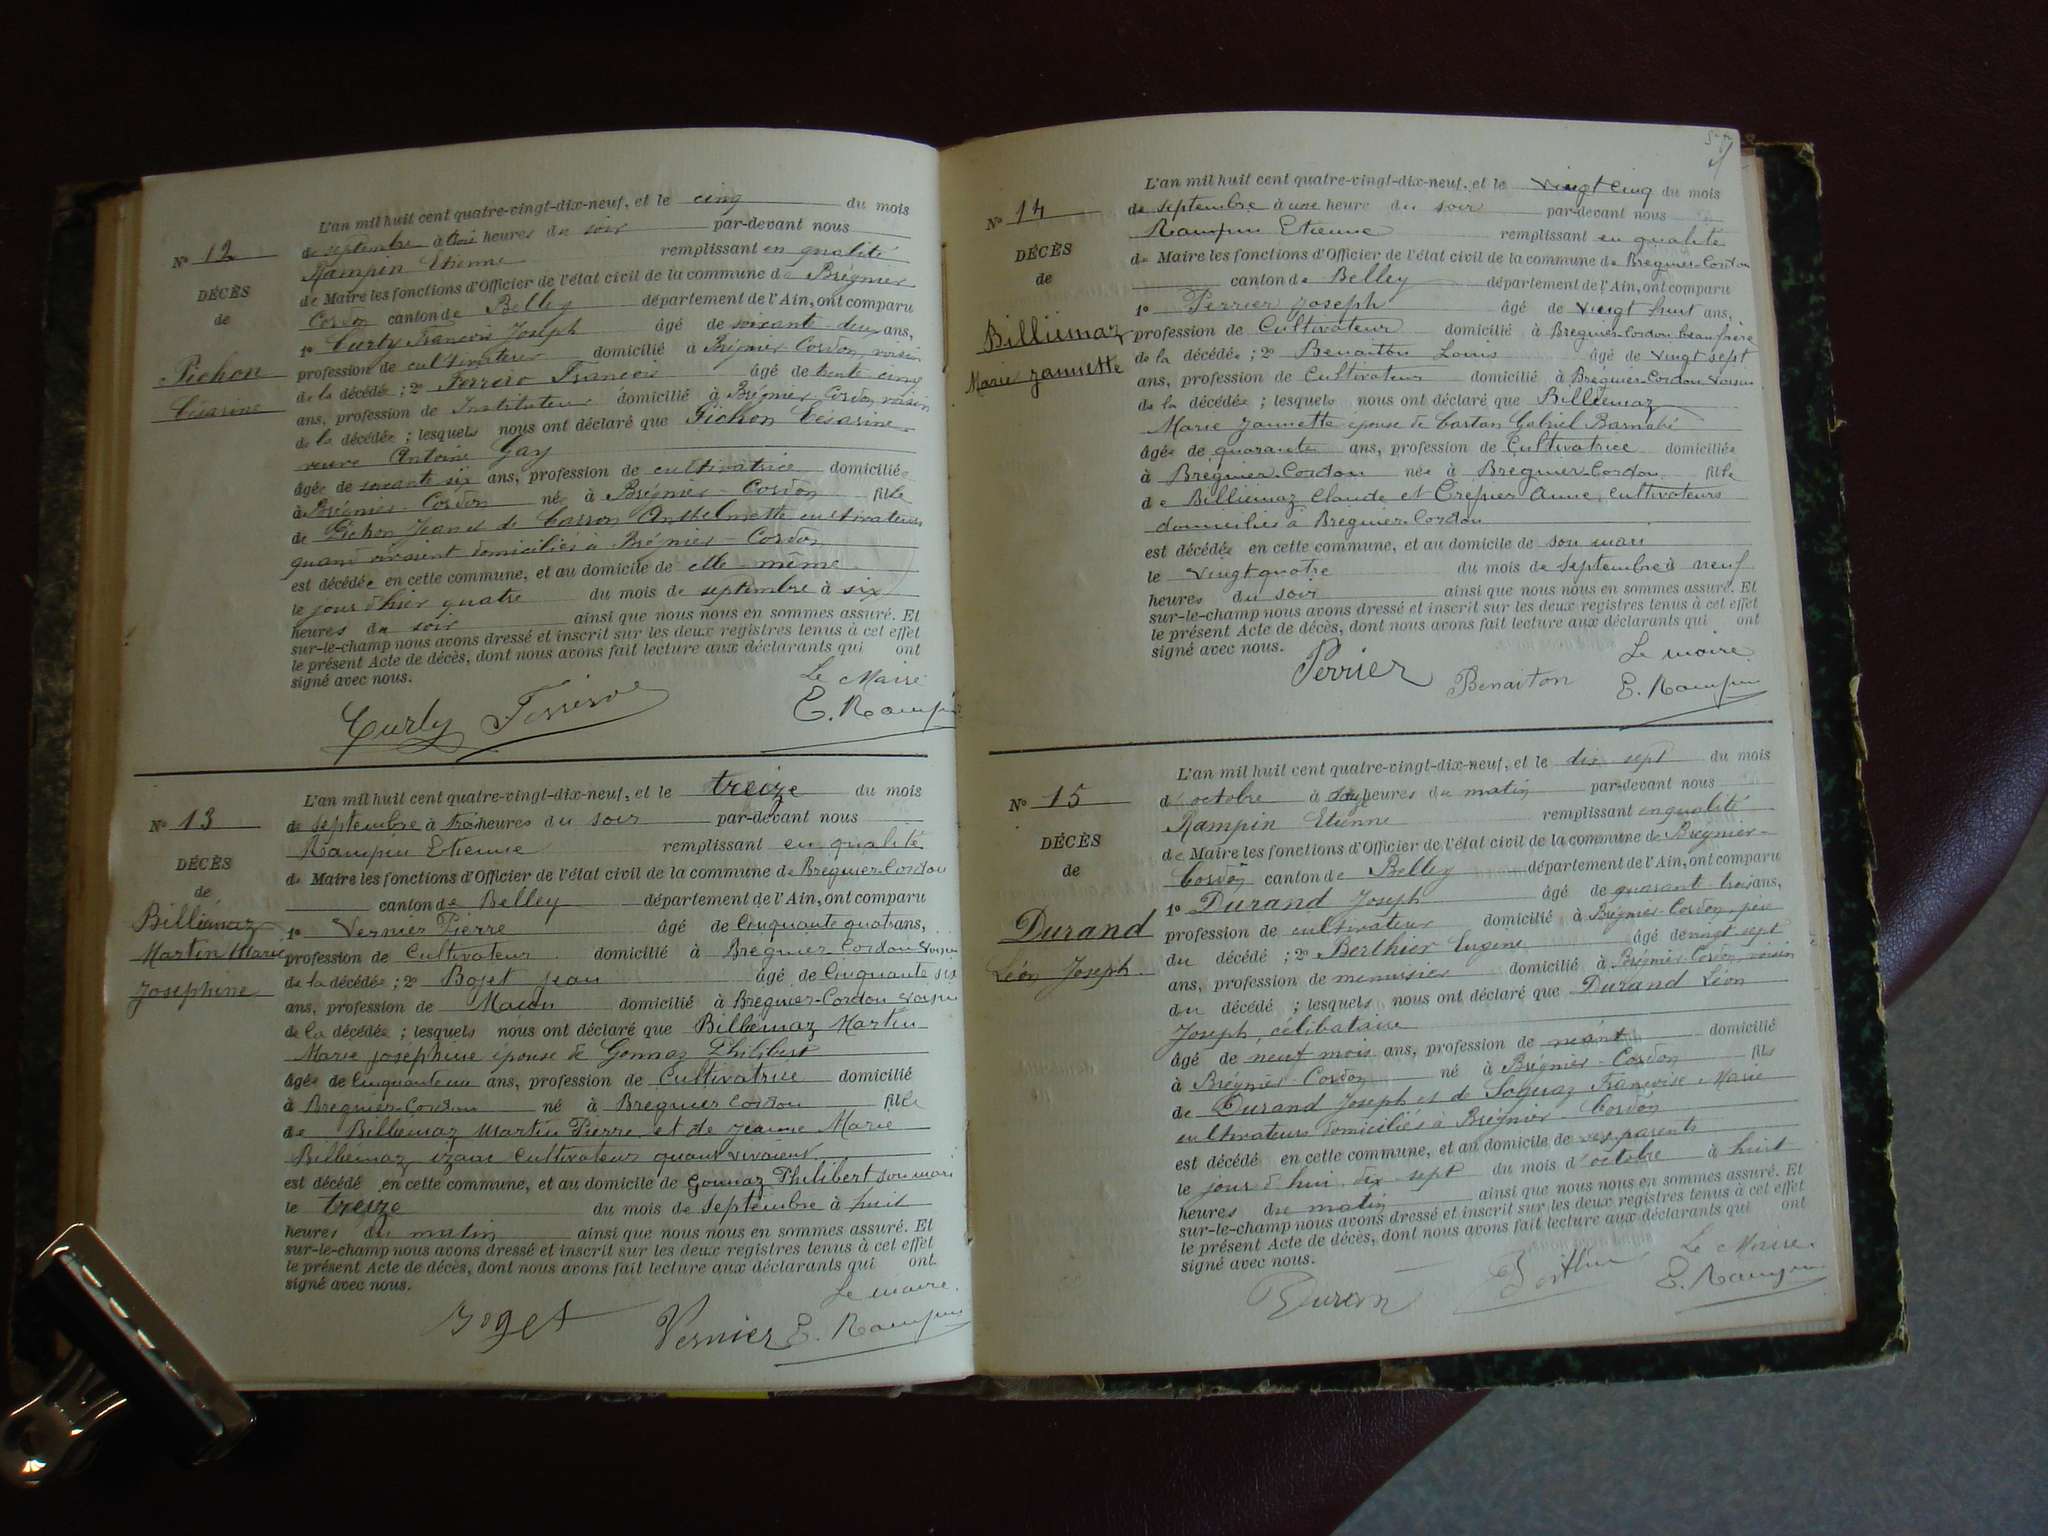 L'an mil huit cent quatre-vingt-dix-neuf, et le cinq du mois
de septembre à trois heures du soir par-devant nous
Rampin Etienne remplissant en qualité
de Maire les fonctions d'Officier de l'état civil de la commune de Brégnier
Cordon canton de Belley département de l'Ain, ont comparu
1º Curly François Joseph âgé de soixante-deux ans,
profession de cultivateur domicilié à Brégnier Cordon, voisin
de la décédée ; 2º Ferrero François âgé de trente cinq
ans, profession de Instituteur domicilié à Brégnier Cordon, voisin
de la décédée ; lesquels nous ont déclaré que Pichon Césarine
veuve Antoine Gay
âgée de soixante six ans, profession de cultivatrice domiciliée
à Brégnier-Cordon née à Brégnier-Cordon fille
de Pichon Jean et de Anthelmette cultivateurs
quand vivaient domiciliés à Brégnier-Cordon
est décédée en cette commune, et au domicile de elle-même
le jour d'hier quatre du mois de septembre à six
heures du soir ainsi que nous nous en sommes assuré. Et
sur-le-champ nous avons dressé et inscrit sur les deux registres tenus à cet effet
le présent Acte de décès, dont nous avons fait lecture aux déclarants qui ont
signé avec nous.
Le Maire
Curly
E. Rampin
Nº 12
DÉCÈS
de
Pichon
Césarine
L'an mil huit cent quatre-vingt-dix-neuf, et le treize du mois
de septembre à trois heures du soir par-devant nous
Rampin Etienne remplissant en qualité
de Maire les fonctions d'Officier de l'état civil de la commune de Bregnier-Cordon
canton de Belley département de l'Ain, ont comparu
1º Vernier Pierre âgé de Cinquante quatre ans,
profession de Cultivateur domicilié à Bregnier Cordon Voisin
de la décédée ; 2º Boget Jean âgé de Cinquante six
ans, profession de Macon domicilié à Bregnier-Cordon voisin
de la décédée ; lesquels nous ont déclaré que Billiémaz Martin
Marie Joséphine épouse de Gonnaz Philibert
âgée de ans, profession de Cultivatrice domicilié
à Bregnier-Cordon né à Bregnier Cordon fille
de Billiemaz Martin Pierre et de Jeanne Marie
Billiémaz cultivateurs quand vivaient
est décédé en cette commune, et au domicile de Gonnaz Philibert son mari
le treize du mois de septembre à huit
heures du matin ainsi que nous nous en sommes assuré. Et
sur-le-champ nous avons dressé et inscrit sur les deux registres tenus à cet effet
le présent Acte de décès, dont nous avons fait lecture aux déclarants qui ont
signé avec nous.
Le maire
Boget Vernier E. Rampin
Nº 13
DÉCÈS
de
Billiémaz
Martin Marie
Josephine
L'an mil huit cent quatre-vingt-dix-neuf, et le vingt cinq du mois
de septembre à une heure du soir par-devant nous
Rampin Etienne remplissant en qualité
de Maire les fonctions d'Officier de l'état civil de la commune de Bregnier-Cordon
canton de Belley département de l'Ain, ont comparu
1º Perrier Joseph âgé de vingt huit ans,
profession de Cultivateur domicilié à Bregnier-Cordon beau frère
de la décédée ; 2º Benaiton Louis âgé de vingt sept
ans, profession de Cultivateur domicilié à Bregnier-Cordon Voisin
de la décédée ; lesquels nous ont déclaré que Billiemaz
Marie Jannette épouse de Castan Gabriel Barnabé
âgée de quarante ans, profession de Cultivatrice domiciliée
à Bregnier-Cordon née à Bregnier-Cordon fille
de Billiemaz Claude et Crépier Anne, Cultivateurs
domiciliés à Bregnier-Cordon
est décédée en cette commune, et au domicile de son mari
le vingt quatre du mois de septembre à neuf
heures du soir ainsi que nous nous en sommes assuré. Et
sur-le-champ nous avons dressé et inscrit sur les deux registres tenus à cet effet
le présent Acte de décès, dont nous avons fait lecture aux déclarants qui ont
signé avec nous.
Le maire
Perrier Benaiton E. Rampin
Nº 14
DÉCÈS
de
Billiémaz
Marie Jannette
L'an mil huit cent quatre-vingt-dix-neuf, et le dix sept du mois
d'octobre à heures du matin par-devant nous
Rampin Etienne remplissant en qualité
de Maire les fonctions d'Officier de l'état civil de la commune de Brégnier-
Cordon canton de Belley département de l'Ain, ont comparu
1º Durand Joseph âgé de quarant trois ans,
profession de cultivateur domicilié à Brégnier-Cordon, père
du décédé ; 2º Berthier Eugène âgé de vingt sept
ans, profession de menuisier domicilié à Brégnier-Cordon, voisin
du décédé ; lesquels nous ont déclaré que Durand Léon
Joseph, célibataire
âgé de neuf mois ans, profession de néant domicilié
à Brégnier-Cordon né à Brégnier-Cordon fils
de Durand Joseph et de Françoise Marie
cultivateurs domiciliés à Brégnier Cordon
est décédé en cette commune, et au domicile de ses parents
le jour d'hui dix-sept du mois d'octobre à huit
heures du matin ainsi que nous nous en sommes assuré. Et
sur-le-champ nous avons dressé et inscrit sur les deux registres tenus à cet effet
le présent Acte de décès, dont nous avons fait lecture aux déclarants qui ont
signé avec nous.
Le Maire
Durand Berthier E. Rampin
Nº 15
DÉCÈS
de
Durand
Léon Joseph